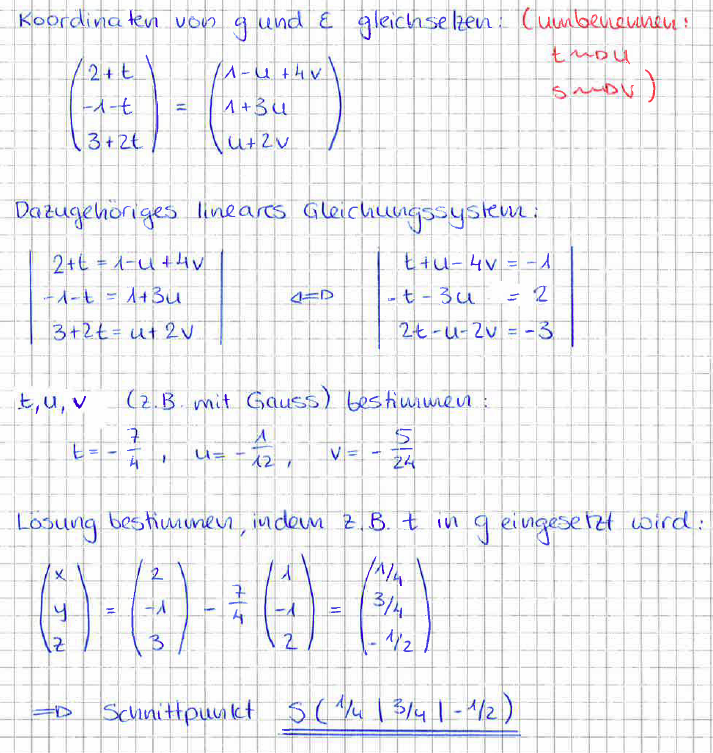 Koordinaten von g und E gleichsetzen: (umbenennen:
t ⇝ u
s ⇝ v)
(2+t) = (1-u+4v)
(-1-t) = (1+3u)
(3+2t) = (u+2v)
Dazugehöriges lineares Gleichungssystem:
| 2+t = 1-u+4v | ⇔ | t+u-4v = -1 |
| -1-t = 1+3u | | -t-3u = 2 |
| 3+2t = u+2v | | 2t-u-2v = -3 |
t, u, v (z.B. mit Gauss) bestimmen:
t = -7/4, u = -1/12, v = -5/24
Lösung bestimmen, indem z.B. t in g eingesetzt wird:
(x) = (2) - 7/4 (1) = (1/4)
(y) (-1) (-1) (3/4)
(z) (3) (2) (-1/2)
⇒ Schnittpunkt S(1/4 | 3/4 | -1/2)